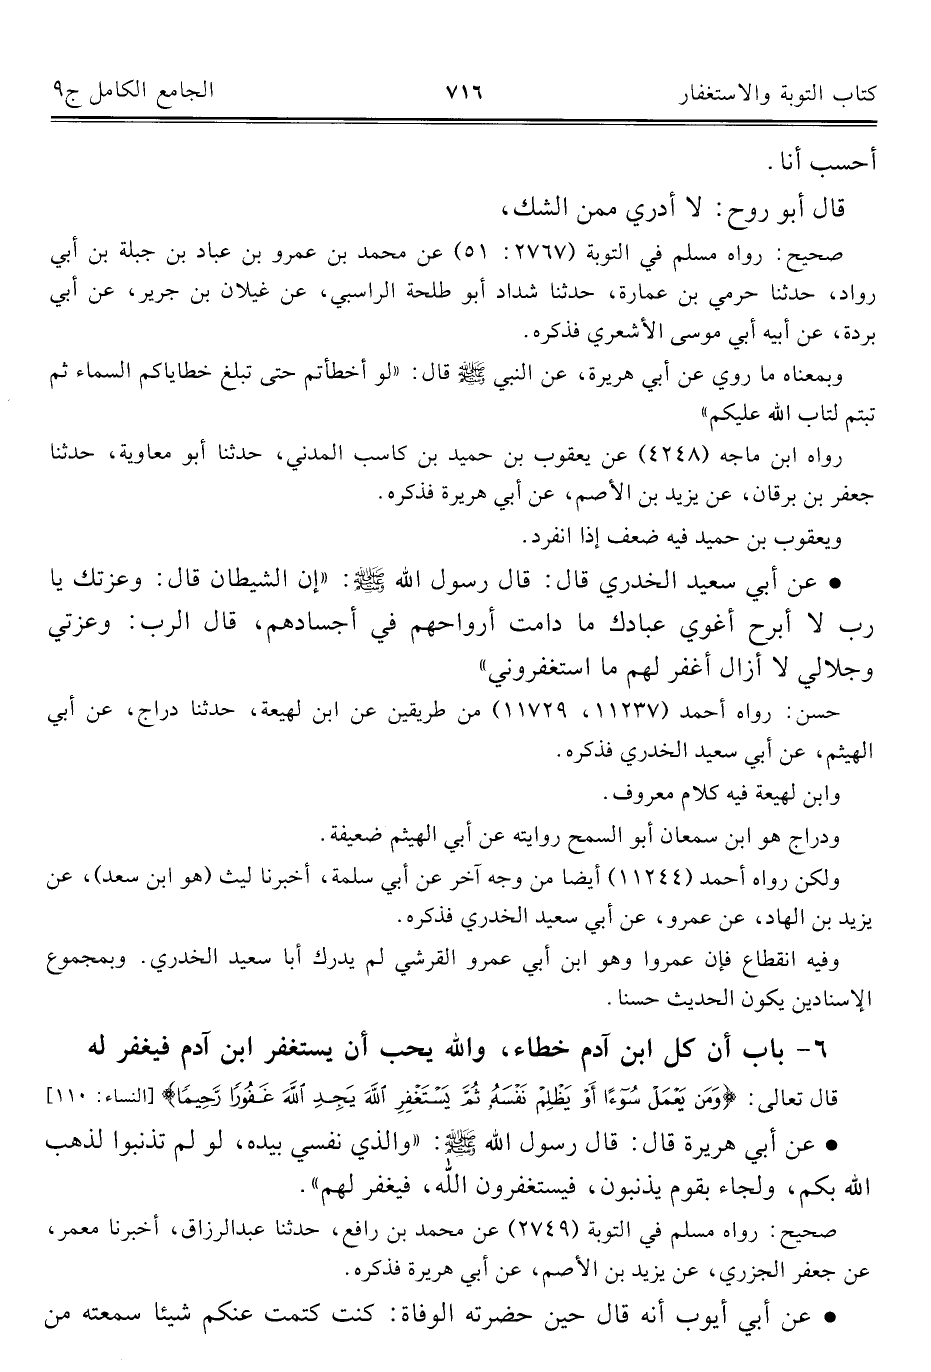 كتاب التوبة والاستغفار ٧١٦ الجامع الكامل ج٩
أحسب أنا.
قال أبو روح: لا أدري ممن الشك،
صحيح: رواه مسلم في التوبة (٢٧٦٧: ٥١) عن محمد بن عمرو بن عباد بن جبلة بن أبي
رواد، حدثنا حرمي بن عمارة، حدثنا شداد أبو طلحة الراسبي، عن غيلان بن جرير، عن أبي
بردة، عن أبيه أبي موسى الأشعري فذكره.
وبمعناه ما روي عن أبي هريرة، عن النبي ﷺ قال: «لو أخطأتم حتى تبلغ خطاياكم السماء ثم
تبتم لتاب الله عليكم»
رواه ابن ماجه (٤٢٤٨) عن يعقوب بن حميد بن كاسب المدني، حدثنا أبو معاوية، حدثنا
جعفر بن برقان، عن يزيد بن الأصم، عن أبي هريرة فذكره.
ويعقوب بن حميد فيه ضعف إذا انفرد.
• عن أبي سعيد الخدري قال: قال رسول الله ﷺ: «إن الشيطان قال: وعزتك يا
رب لا أبرح أغوي عبادك ما دامت أرواحهم في أجسادهم، قال الرب: وعزتي
وجلالي لا أزال أغفر لهم ما استغفروني»
حسن: رواه أحمد (١١٢٣٧، ١١٧٢٩) من طريقين عن ابن لهيعة، حدثنا دراج، عن أبي
الهيثم، عن أبي سعيد الخدري فذكره.
وابن لهيعة فيه كلام معروف.
ودراج هو ابن سمعان أبو السمح روايته عن أبي الهيثم ضعيفة.
ولكن رواه أحمد (١١٢٤٤) أيضا من وجه آخر عن أبي سلمة، أخبرنا ليث (هو ابن سعد)، عن
يزيد بن الهاد، عن عمرو، عن أبي سعيد الخدري فذكره.
وفيه انقطاع فإن عمروا وهو ابن أبي عمرو القرشي لم يدرك أبا سعيد الخدري. وبمجموع
الإسنادين يكون الحديث حسنا.
٦- باب أن كل ابن آدم خطاء، والله يحب أن يستغفر ابن آدم فيغفر له
قال تعالى: ﴿وَمَن يَعْمَلْ سُوٓءًا أَوْ يَظْلِمْ نَفْسَهُۥ ثُمَّ يَسْتَغْفِرِ ٱللَّهَ يَجِدِ ٱللَّهَ غَفُورًا رَّحِيمًا﴾ [النساء: ١١٠]
• عن أبي هريرة قال: قال رسول الله ﷺ: «والذي نفسي بيده، لو لم تذنبوا لذهب
الله بكم، ولجاء بقوم يذنبون، فيستغفرون الله، فيغفر لهم».
صحيح: رواه مسلم في التوبة (٢٧٤٩) عن محمد بن رافع، حدثنا عبدالرزاق، أخبرنا معمر،
عن جعفر الجزري، عن يزيد بن الأصم، عن أبي هريرة فذكره.
• عن أبي أيوب أنه قال حين حضرته الوفاة: كنت كتمت عنكم شيئا سمعته من